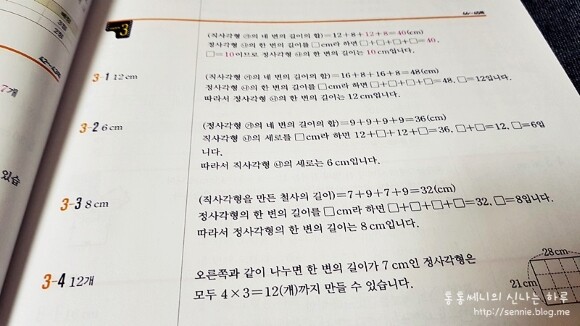 3
(직사각형 ㉮의 네 변의 길이의 합)=12+8+12+8=40(cm)
정사각형 ㉯의 한 변의 길이를 □cm라 하면 □+□+□+□=40,
□=10이므로 정사각형 ㉯의 한 변의 길이는 10 cm입니다.
7개
3-1 12 cm
(직사각형 ㉮의 네 변의 길이의 합)=16+8+16+8=48(cm)
정사각형 ㉯의 한 변의 길이를 □cm라 하면 □+□+□+□=48, □=12입니다.
따라서 정사각형 ㉯의 한 변의 길이는 12 cm입니다.
3-2 6 cm
(정사각형 ㉮의 네 변의 길이의 합)=9+9+9+9=36(cm)
직사각형 ㉯의 세로를 □cm라 하면 12+□+12+□=36, □+□=12, □=6입
니다.
따라서 직사각형 ㉯의 세로는 6 cm입니다.
있습
3-3 8 cm
(직사각형을 만든 철사의 길이)=7+9+7+9=32(cm)
정사각형의 한 변의 길이를 □cm라 하면 □+□+□+□=32, □=8입니다.
따라서 정사각형의 한 변의 길이는 8 cm입니다.
3-4 12개
오른쪽과 같이 나누면 한 변의 길이가 7 cm인 정사각형은
모두 4×3=12(개)까지 만들 수 있습니다.
28cm
21cm
통통쎄니의 신나는 하루
http://sennie.blog.me